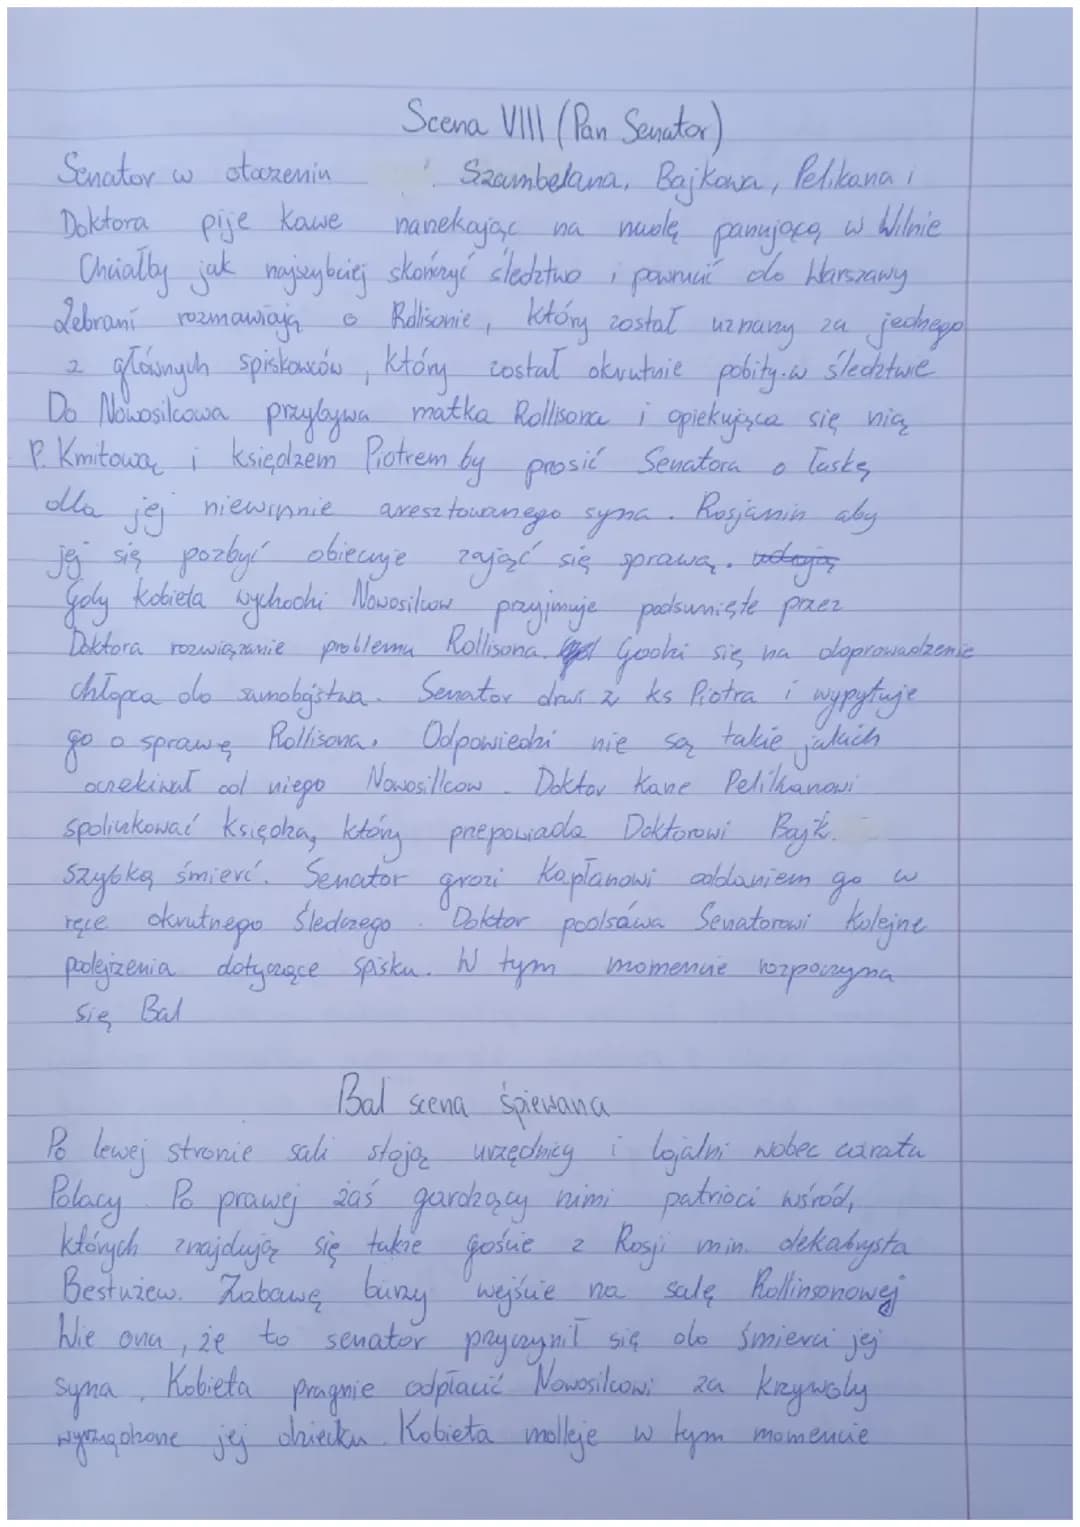 Scena VIII (Pan Senator)
Senator w otoczeniu Szambelana, Bajkowa, Pelikana i
Doktora pije kawe nanekając na nudę panującą w Wilnie
Chciałby jak najszybciej skończyć śledztwo i powrócić do Warszawy
Zebrani rozmawiają o Rollisonie, który został uznany za jednego
z głównych spiskowców, który został okrutnie pobity w śledztwie
Do Nowosilcowa przybywa matka Rollisona i opiekująca się nią
P. Kmitową i księdzem Piotrem by prosić Senatora o łaskę
dla jej niewinnie aresztowanego syna. Rosjanin aby
jej się pozbyć obiecuje zająć się sprawą.
Gdy kobieta wychodzi Nowosilcow przyjmuje podsunięte przez
Doktora rozwiązanie problemu Rollisona. Godzi się na doprowadzenie
chłopca do samobójstwa. Senator drwi z ks Piotra i wypytuje
go o sprawę Rollisona. Odpowiedzi nie są takie jakich
oczekiwał od niego Nowosillcow. Doktor Kaze Pelikanowi
spoliczkować Księdza, który przepowiada Doktorowi Bajk.
szybką śmierć. Senator grozi Kapłanowi oddaniem go w
ręce okrutnego Śledczego. Doktor podsówa Senatorowi Kolejne
podejrzenia dotyczące spisku. W tym momencie rozpoczyna
się Bal
Bal scena śpiewana
Po lewej stronie sali stoją urzędnicy i lojalni wobec caratu
Polacy. Po prawej zaś gardzący nimi patrioci wśród,
których znajdują się także goście z Rosji min. dekabrysta
Bestużew. Zabawę burzy wejście na salę Rollinsonowej
Wie ona, że to senator przyczynił się do śmierci jej
syna. Kobieta pragnie odpłacić Nowosilcowi za krzywdy
wyrządzone jej dziecku. Kobieta mdleje w tym momencie